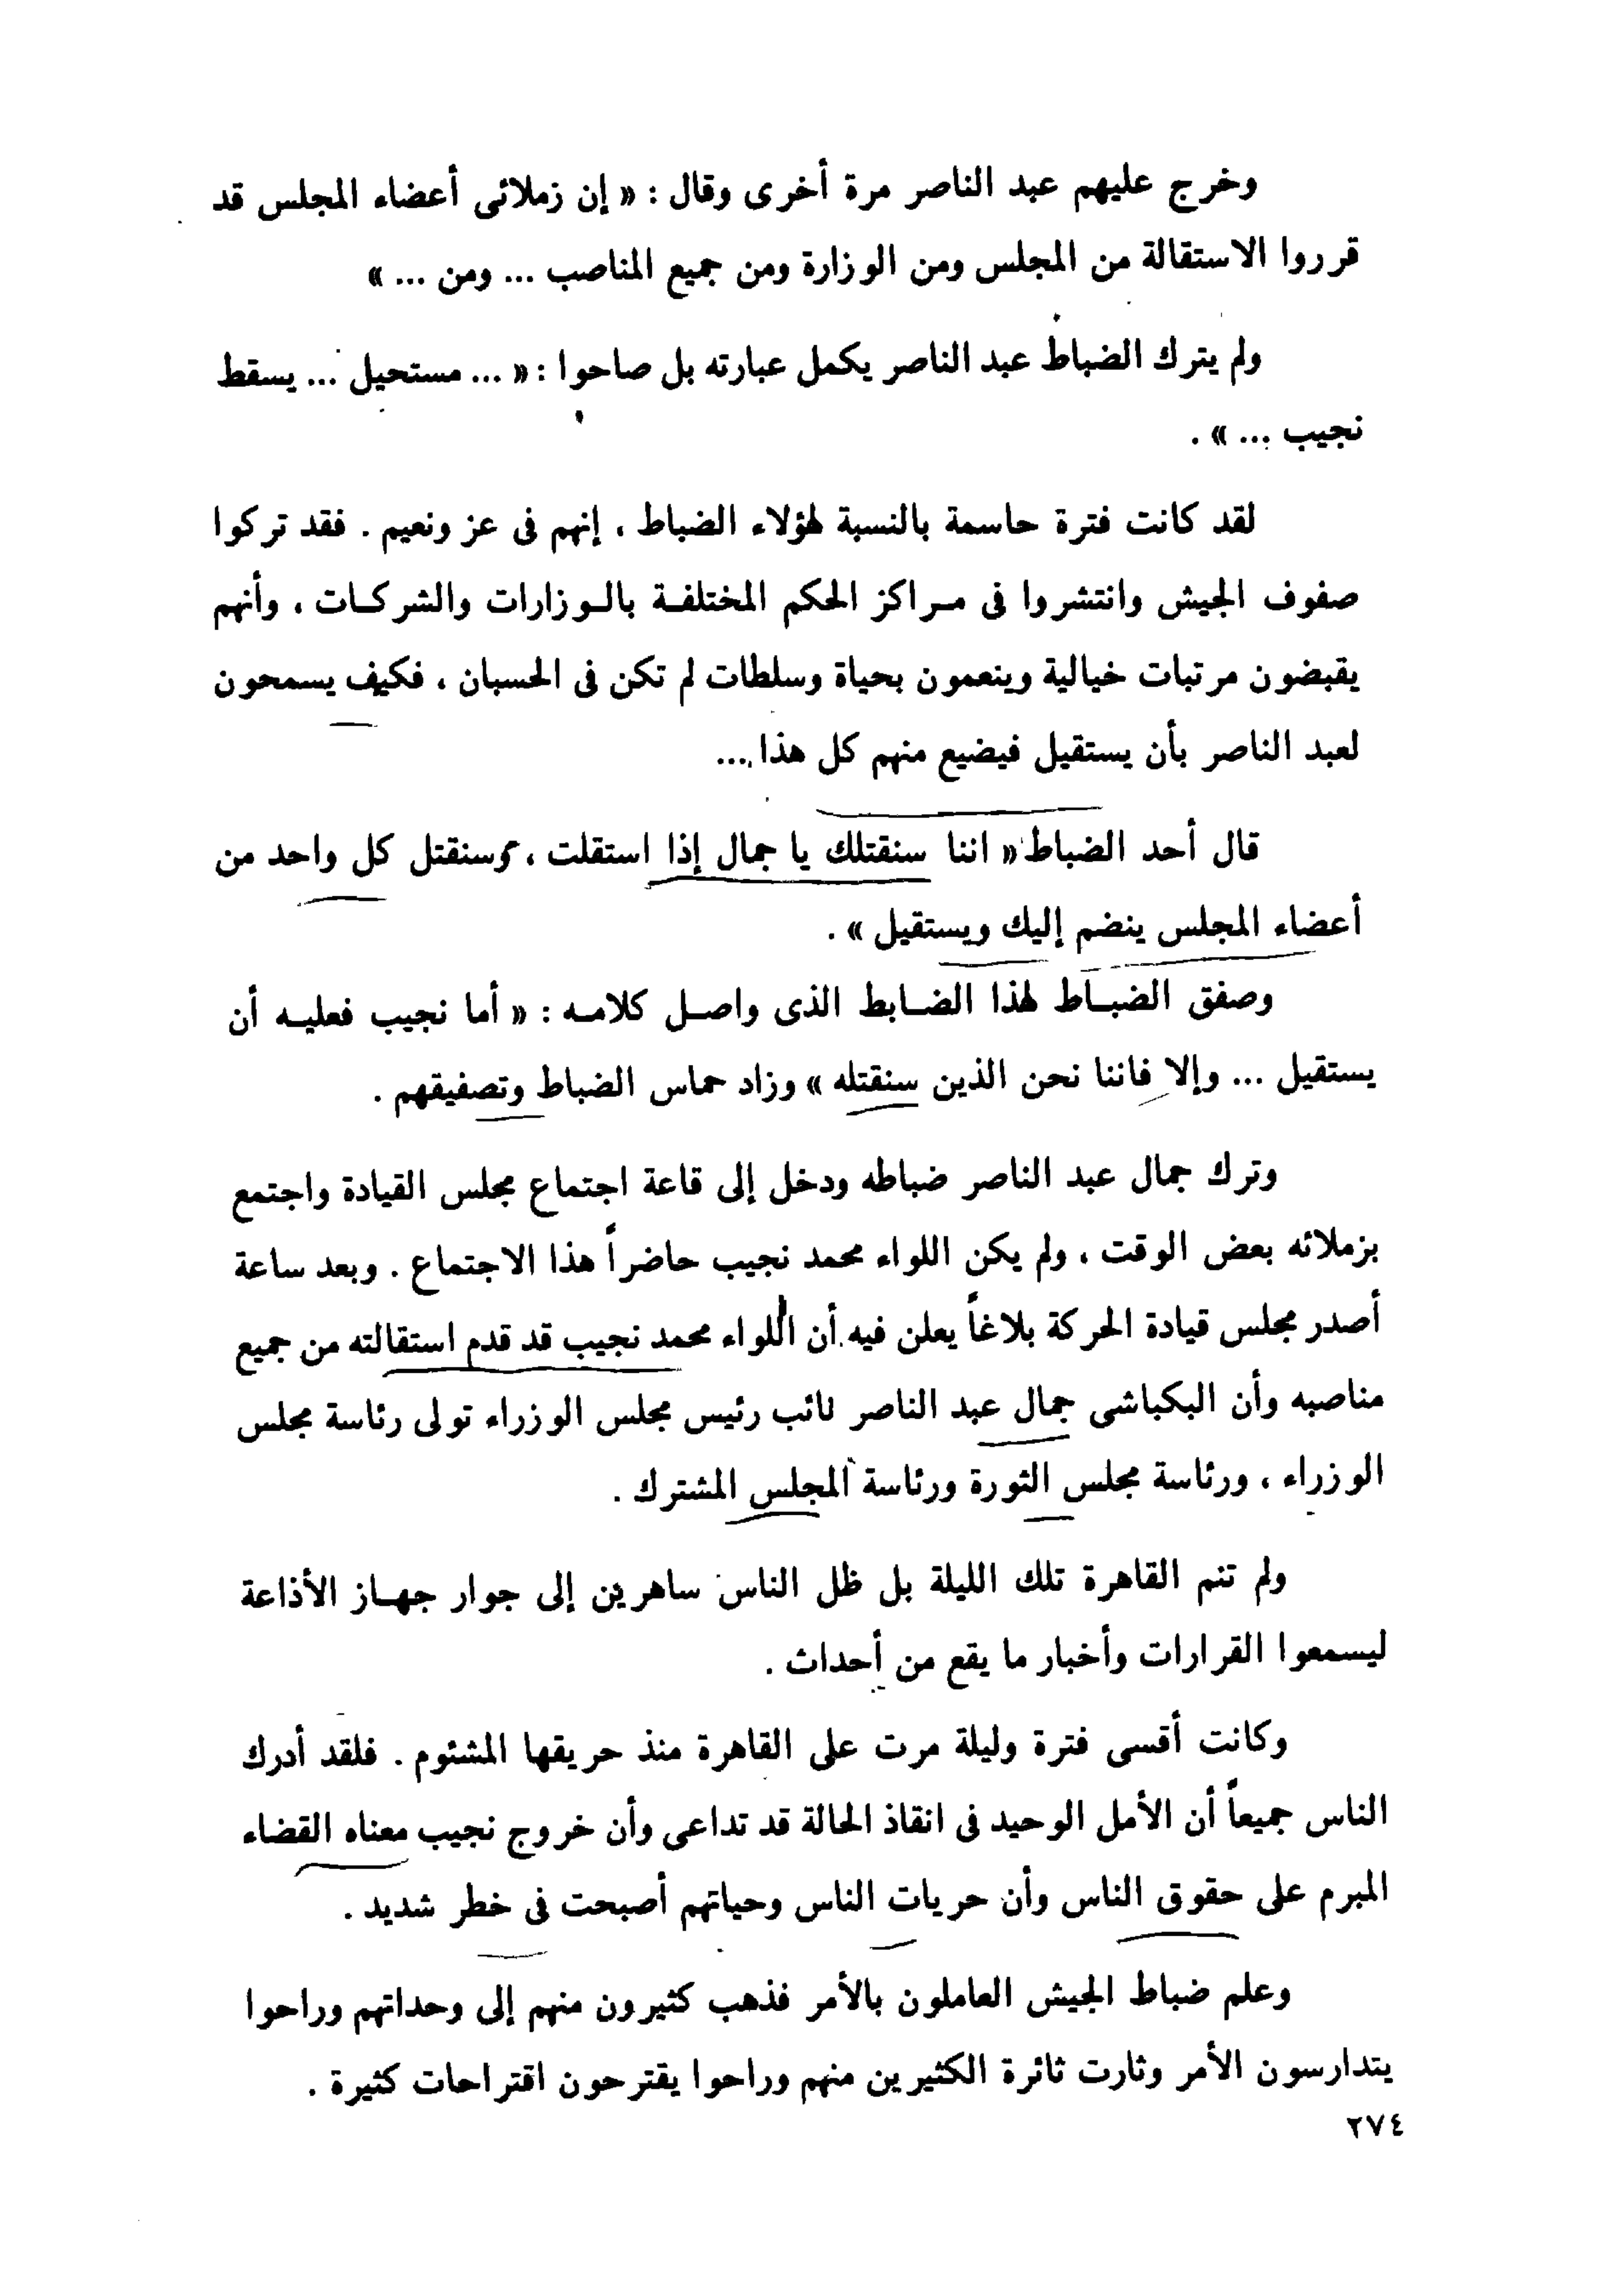 وخرج عليهم عبد الناصر مرة أخرى وقال : « إن زملائى أعضاء المجلس قد
قرروا الاستقالة من المجلس ومن الوزارة ومن جميع المناصب ... ومن ... »
ولم يترك الضباط عبد الناصر يكمل عبارته بل صاحوا : « ... مستحيل ... يسقط
نجيب ... » .
لقد كانت فترة حاسمة بالنسبة لهؤلاء الضباط ، إنهم فى عز ونعيم . فقد تركوا
صفوف الجيش وانتشروا فى مراكز الحكم المختلفة بالوزارات والشركات ، وأنهم
يقبضون مرتبات خيالية وينعمون بحياة وسلطات لم تكن فى الحسبان ، فكيف يسمحون
لعبد الناصر بأن يستقيل فيضيع منهم كل هذا ...
قال أحد الضباط « اننا سنقتلك يا جمال إذا استقلت ، وسنقتل كل واحد من
أعضاء المجلس ينضم إليك ويستقيل » .
وصفق الضباط لهذا الضابط الذى واصل كلامه : « أما نجيب فعليه أن
يستقيل ... وإلا فاننا نحن الذين سنقتله » وزاد حماس الضباط وتصفيقهم .
وترك جمال عبد الناصر ضباطه ودخل إلى قاعة اجتماع مجلس القيادة واجتمع
بزملائه بعض الوقت ، ولم يكن اللواء محمد نجيب حاضراً هذا الاجتماع . وبعد ساعة
أصدر مجلس قيادة الحركة بلاغاً يعلن فيه أن اللواء محمد نجيب قد قدم استقالته من جميع
مناصبه وأن البكباشى جمال عبد الناصر نائب رئيس مجلس الوزراء تولى رئاسة مجلس
الوزراء ، ورئاسة مجلس الثورة ورئاسة المجلس المشترك .
ولم تنم القاهرة تلك الليلة بل ظل الناس ساهرين إلى جوار جهاز الأذاعة
ليسمعوا القرارات وأخبار ما يقع من أحداث .
وكانت أقسى فترة وليلة مرت على القاهرة منذ حريقها المشئوم . فلقد أدرك
الناس جميعاً أن الأمل الوحيد فى انقاذ الحالة قد تداعى وأن خروج نجيب معناه القضاء
المبرم على حقوق الناس وأن حريات الناس وحياتهم أصبحت فى خطر شديد .
وعلم ضباط الجيش العاملون بالأمر فذهب كثيرون منهم إلى وحداتهم وراحوا
يتدارسون الأمر وثارت ثائرة الكثيرين منهم وراحوا يقترحون اقتراحات كثيرة .
٢٧٤